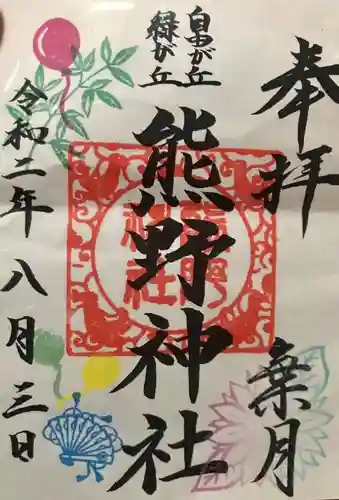 奉拝
葉月
自由が丘
緑が丘
熊野神社
令和二年八月三日